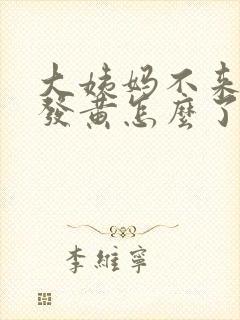 大姨妈不来
發黄怎麼了
李維寧